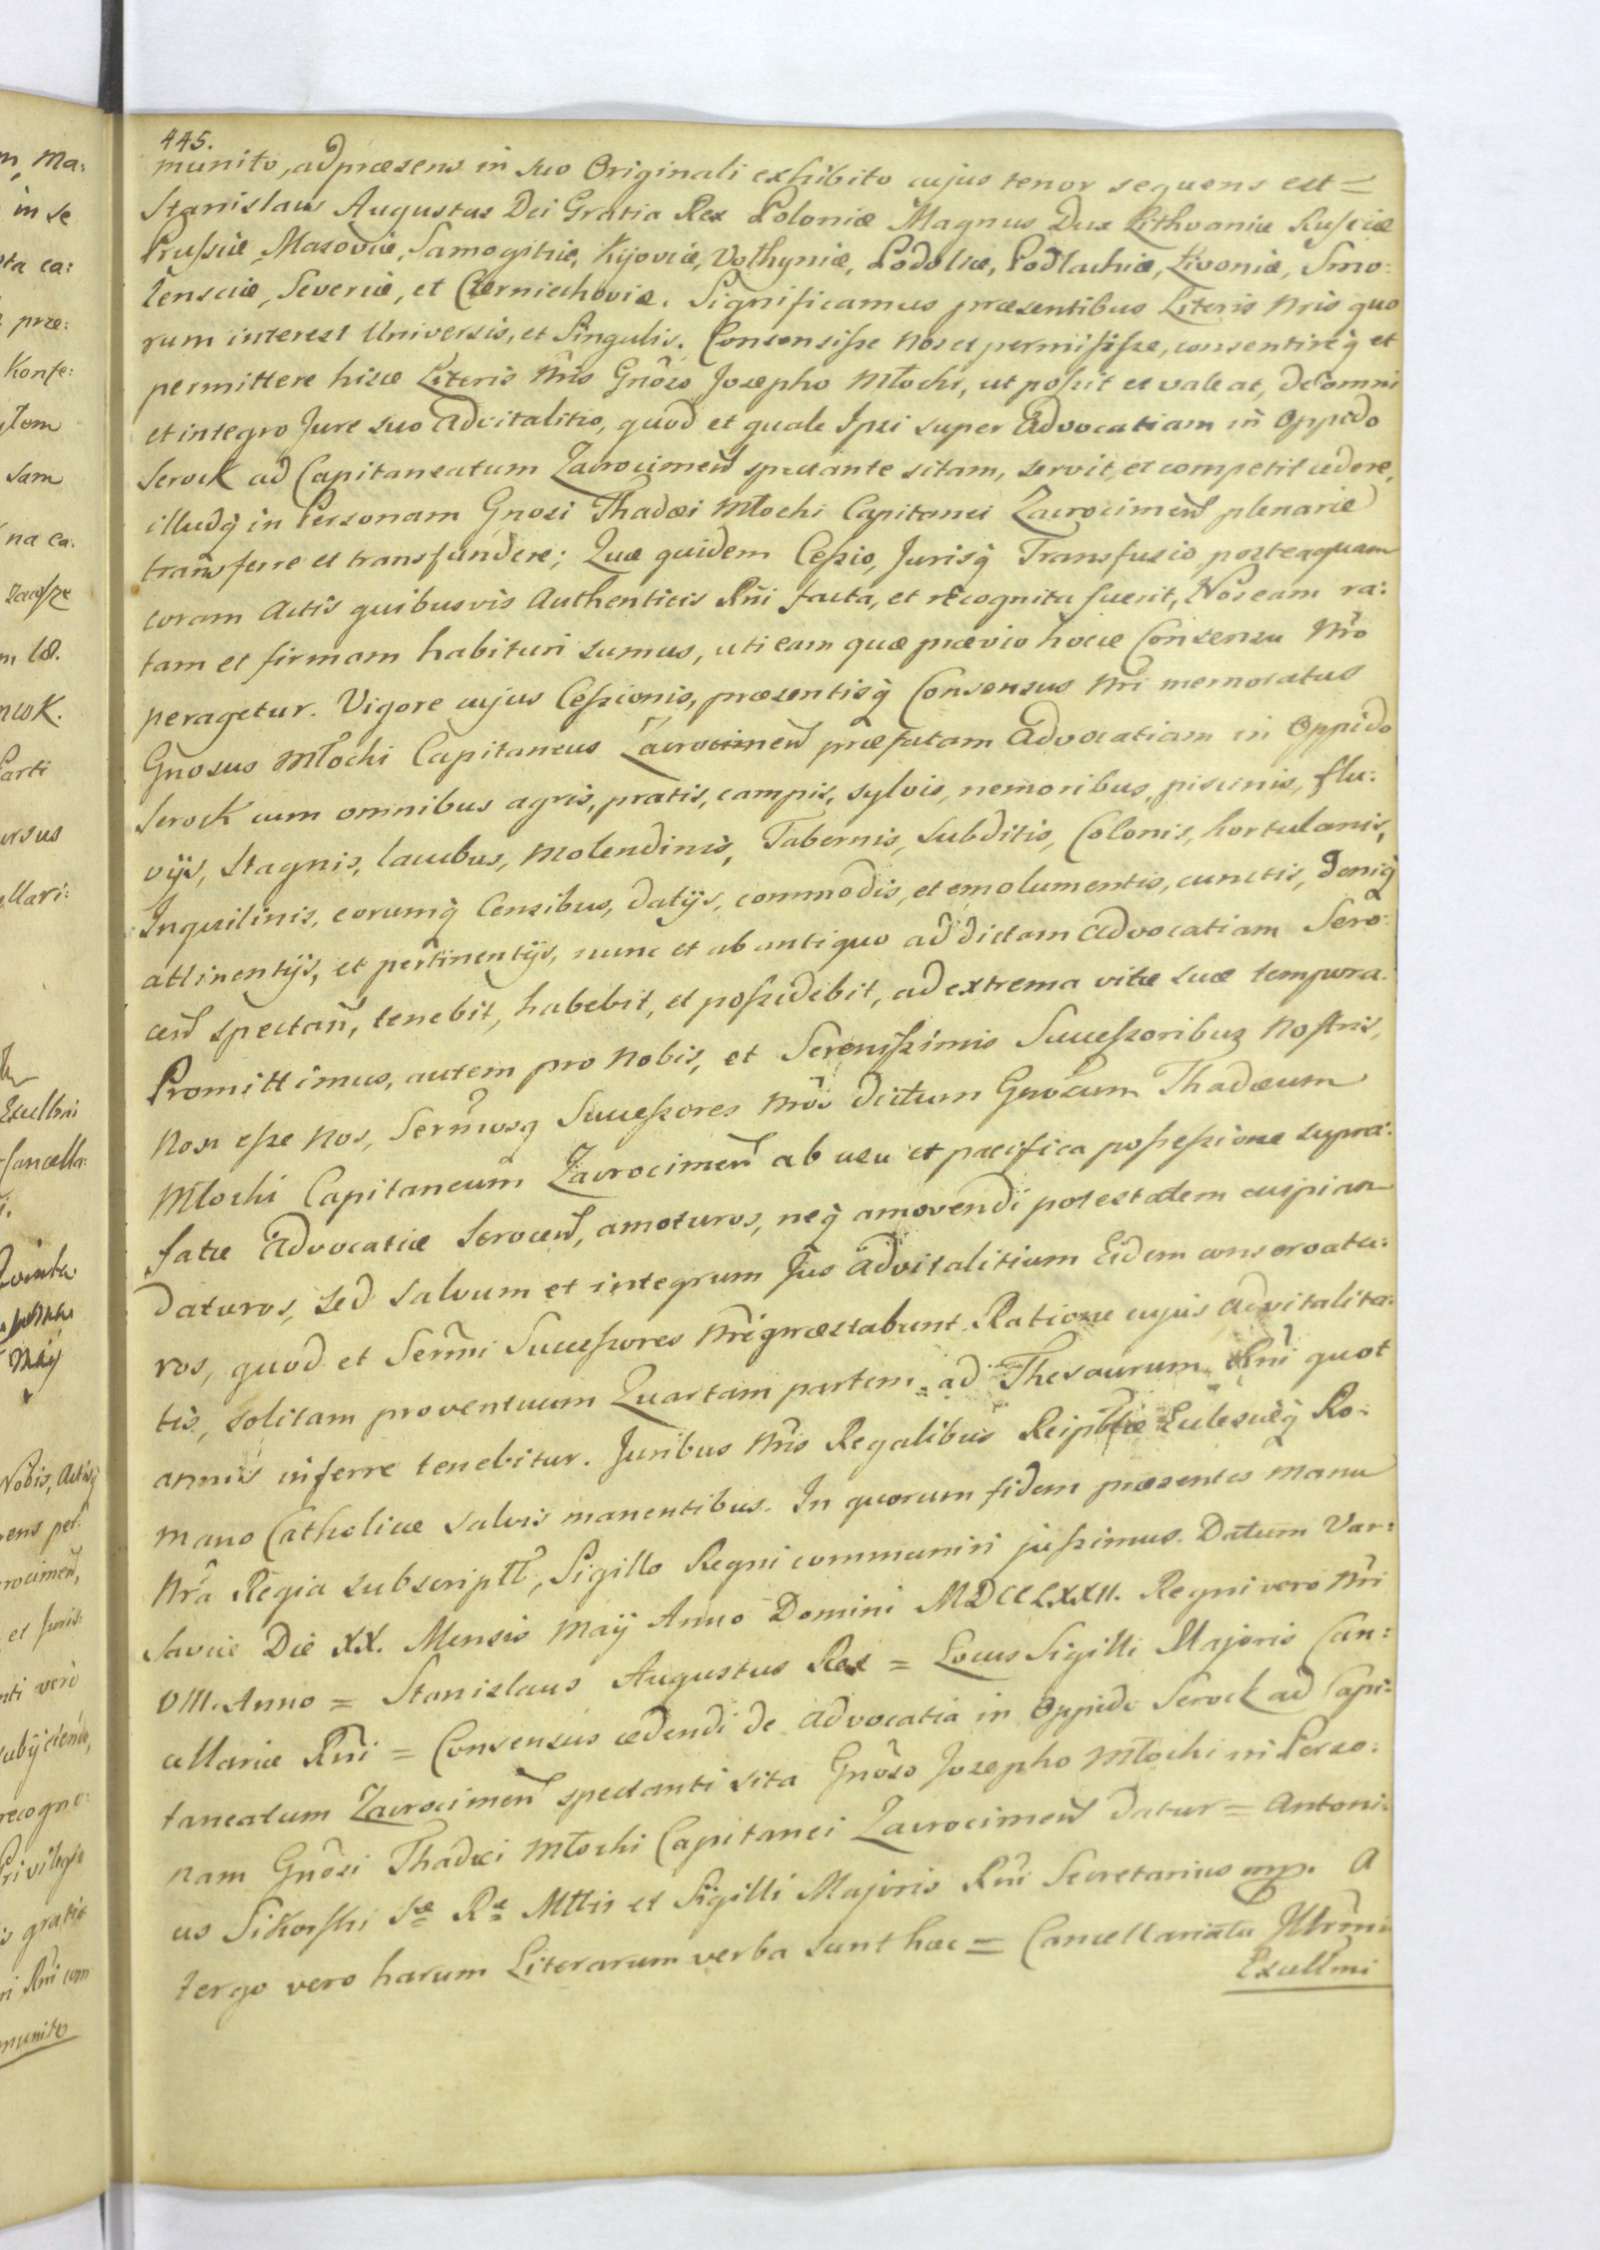 445.
munito, ad præsens in suo Originali exhibito cujus tenor sequens est =
Stanislaus Augustus Dei Gratia Rex Poloniæ Magnus Dux Lithvaniæ Russiæ
Prussiæ Masoviæ, Samogitiæ, Kijoviæ, Volhyniæ, Podoliæ, Podlachiæ, Livoniæ, Smo:
lensciæ, Severiæ, et Czerniechoviæ. Significamus præsentibus Literis Nris quo
rum interest Universis, et Singulis. Consensisse Nos et permisisse, consentireq et
permittere hisce Literis Nris Gnoso Josepho Młocki, ut possit et valeat, de omni
et integro Jure suo Advitalitio, quod et quale Ipsi super Advocatiam in Oppido
Serock ad Capitaneatum Zacrocimen spectante sitam, servit, et competit cedere,
illudq in Personam Gnosi Thadæi Młocki Capitanei Zacrocimen plenarie
transferre et transfundere; Quæ quidem Cessio, Jurisq Transfusio, posteaquam
coram Actis quibusvis Authenticis Rni facta, et recognita fuerit, Nos eam ra:
tam et firmam habituri sumus, uti eam quæ prævio hocce Consensu Nro
peragetur. Vigore cujus Cessionis, præsentisq Consensus Nri memoratus
Gnosus Młocki Capitaneus Zacrocimen præfatam Advocatiam in Oppido
Serock cum omnibus agris, pratis, campis, sylvis, nemoribus, piscinis, flu:
vijs, Stagnis, lacubus, Molendinis, Tabernis, Subditis, Colonis, hortulanis,
Inquilinis, eorumq Censibus, datijs, commodis, et emolumentis, cunctis, deniq
attinentijs, et pertinentijs, nunc et ab antiquo ad dictam Advocatiam Sero:
cen spectan, tenebit, habebit, et possidebit, ad extrema vitæ suæ tempora.
Promittimus, autem pro Nobis, et Serenissimis Successoribus Nostris,
Non esse Nos, Sermosq Successores Nros dictum Gnosum Thadæum
Młocki Capitaneum Zacrocimen ab usu et pacifica possessione supra:
fatæ Advocatiæ Serocen, amoturos, neq amovendi potestatem cuspiam
daturos, sed salvum et integrum Jus Advitalitium Eidem conservatu:
ros, quod et Sermi Successores Nri præstabunt. Ratione cujus advitalita:
tis, solitam proventuum Quartam partem, ad Thesaurum Rni quot
annis inferre tenebitur. Juribus Nris Regalibus Reipblicæ Eclesiæq Ro:
mano Catholicæ salvis manentibus. In quorum fidem præsentes manu
Nra Regia subscript, Sigillo Regni communiri jussimus. Datum Var:
saviæ Die XX. Mensis Maij Anno Domini MDCCLXXII. Regni vero Nri
VIII. Anno = Stanislaus Augustus Rex = Locus Sigilli Majoris Can:
cellariæ Rni = Consensus cedendi de Advocatia in Oppido Serock ad Capi:
taneatum Zacrocimen spectanti sita Gnoso Josepho Młocki in Perso:
nam Gnosi Thadæi Młocki Capitanei Zacrocimen datur = Antoni:
us Sikorski Sæ Ræ Mttis et Sigilli Majoris Rni Secretarius mp. A
tergo vero harum Literarum verba sunt hæc = Cancellariatu Illrmi
Excellmi